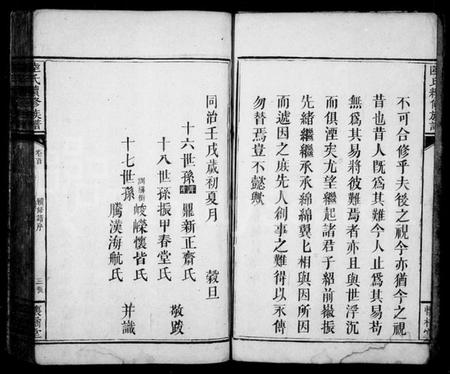 不可合修乎夫後之視今亦猶今之視
昔也昔人既為其難今人止為其易苟
無為其易將彼難焉者亦且與世浮沉
而俱湮矣尤望繼起諸君子紹前徽振
先緒繼繼承承綿綿翼匕相與因所因
而遞因之庶先人創事之難得以永傳
勿替焉豈不懿歟
同治壬戌歲初夏月 穀旦
十六世孫 鼎新正齋氏
十八世孫振甲春堂氏 敬跋
十七世孫 峻嶸懷皆氏
騰漢海航氏 并識
氏續修族譜
卷首
續修譜序